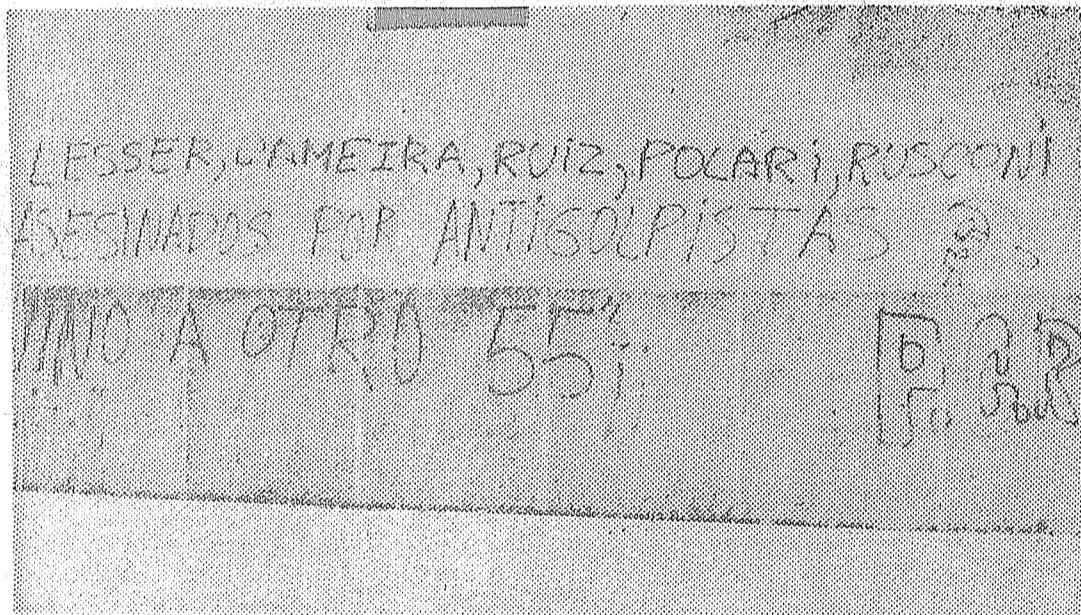 LESSER, CAMEIRA, RUiZ, POLARi, RUSCONi
ASESINADOS POR ANTIGOLPISTAS
NO A OTRO 55